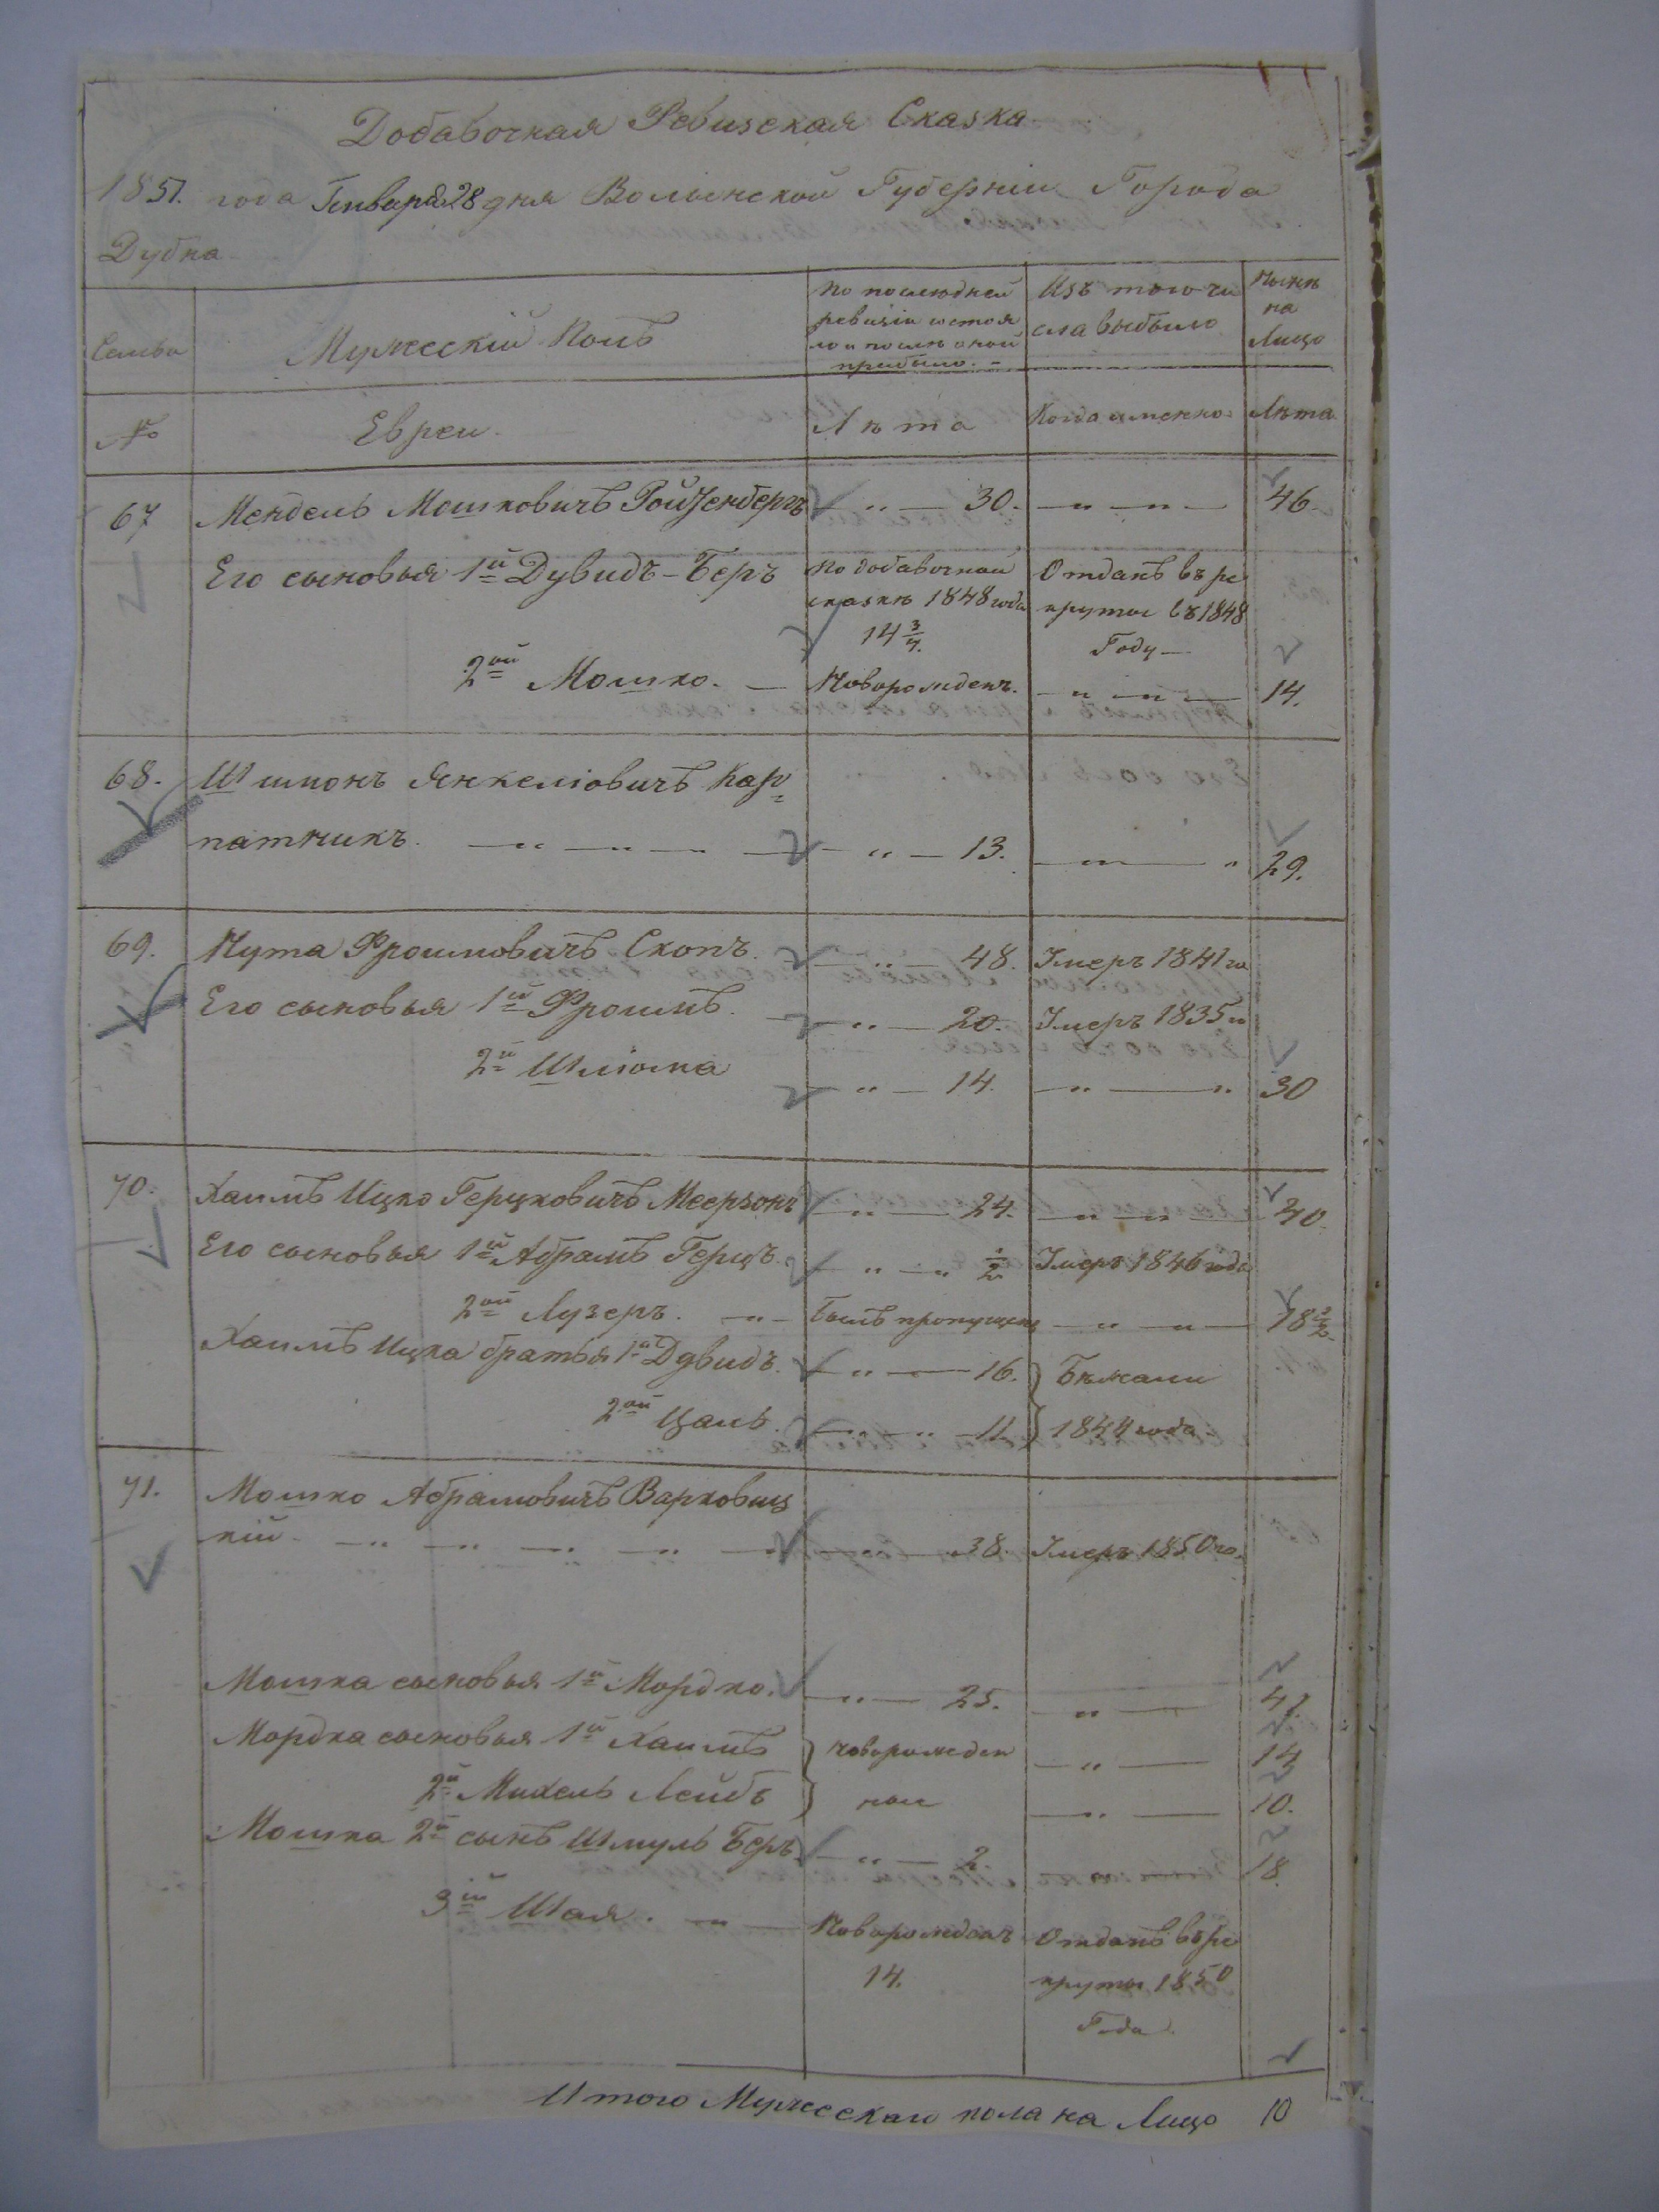 Добавочная Ревизская Сказка
1851. года Генваря 28 дня Волынской Губерніи Города
Дубна
Семьи
Мужескій Полъ
по последней
ревизіи состоя
ло и после оной
прибыло.
Изъ того чи
сла выбыло
Ныне
на
Лицо
№
Евреи.
Лета
Когда именно
Лета
67 Мендель Мошковичъ Ройзенбергъ " 30. " " 46.
Его сыновья 1й Дувидъ-Беръ По добавочной Отданъ въ ре
сказке 1848 года круты въ 1848
14 3/4. Году
2ой Мошко. Новорожденъ. " " 14.
68. Шимонъ Янкеліовичъ Кар
патникъ. " " " 13. " 29.
69. Нута Фроимовичъ Скопъ. " 48. Умеръ 1841 го
Его сыновья 1й Фроимъ. " 20. Умеръ 1835 го
2й Шліома " 14. " " 30
70. Хаимъ Ицко Герцковичъ Меерзонъ " 24. " " 40.
Его сыновья 1й Абрамъ Герцъ. " " 1/2 Умеръ 1846 года
2ой Лузеръ. " Былъ пропущенъ " " 18 1/2.
Хаимъ Ицка братья 1й Дувидъ. " 16. Бежали
2ой Цаль. " " 11. 1844 года
71. Мошко Абрамовичъ Варковиц
кій. " " " " " " 38. Умеръ 1850 го.
Мошка сыновья 1й Мордко. " 25. " 41.
Мордка сыновья 1й Хаимъ новорожден " 14
2й Михель Лейбъ ные " 10.
Мошка 2й сынъ Шмуль Беръ. " 2 18.
3ій Шая. " Новорожденъ Отданъ въ ре
14. круты 1850
Года.
Итого Мужескаго пола на Лицо 10